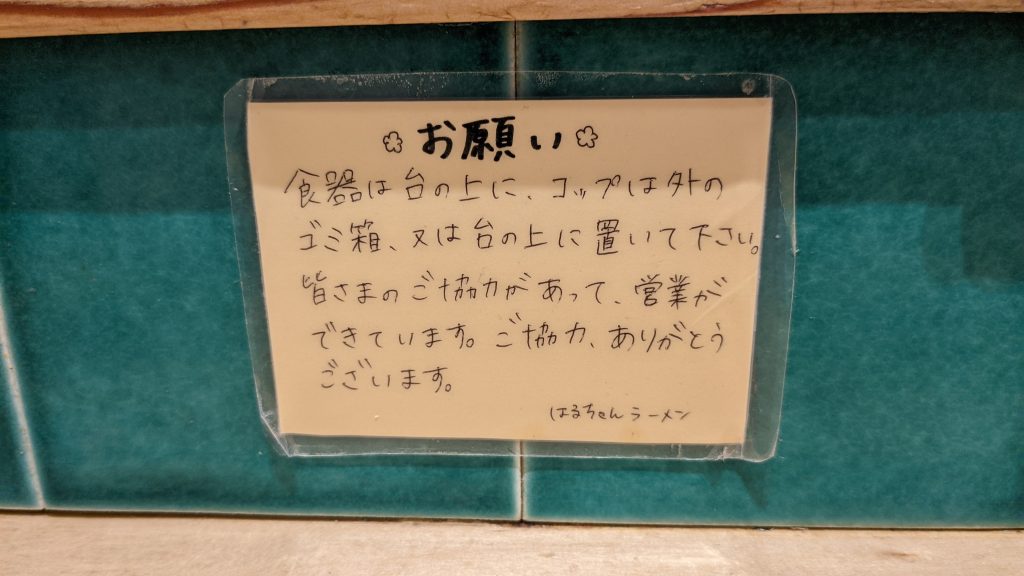 お願い
食器は台の上に、コップは外の
ゴミ箱、又は台の上に置いて下さい。
皆さまのご協力があって、営業が
できています。ご協力、ありがとう
ございます。
はるちゃんラーメン